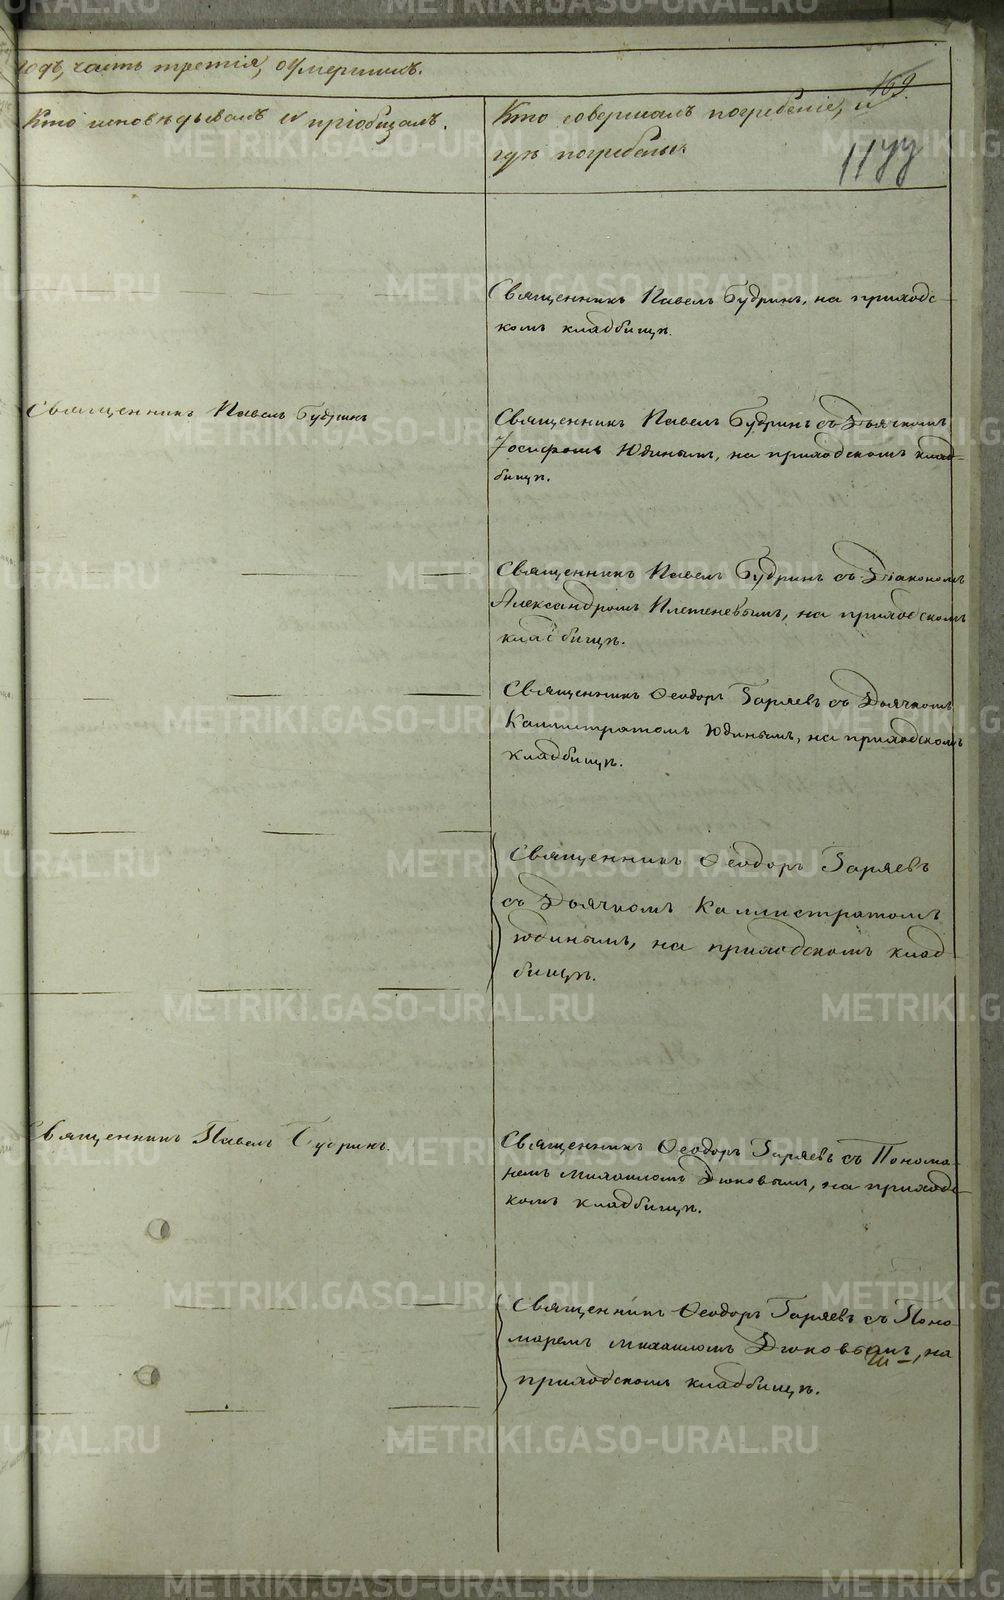 годъ, часть третія, оумершихъ.
169.
Кто исповѣдывалъ и пріобщалъ.
Кто совершалъ погребеніе, и
гдѣ погребены.
Священникъ Павелъ Будринъ, на приходс-
комъ кладбищѣ.
Священникъ Павелъ Будринъ
Священникъ Павелъ Будринъ съ Дьячкомъ
Іосифомъ Юдинымъ, на приходскомъ клад-
бищѣ.
Священникъ Павелъ Будринъ съ Діакономъ
Александромъ Плетеневымъ, на приходскомъ
кладбищѣ.
Священникъ Ѳеодоръ Гаряевъ съ Дьячкомъ
Каллистратомъ Юдинымъ, на приходскомъ
кладбищѣ.
Священникъ Ѳеодоръ Гаряевъ
съ Дьячкомъ Каллистратомъ
Юдинымъ, на приходскомъ клад
бищѣ.
Священникъ Павелъ Будринъ.
Священникъ Ѳеодоръ Гаряевъ съ Понома-
ремъ Михаиломъ Дюковымъ, на приходс-
комъ кладбищѣ.
Священникъ Ѳеодоръ Гаряевъ съ Поно-
маремъ Михаиломъ Дюковымъ, на
приходскомъ кладбищѣ.
METRIKI.GASO-URAL.RU